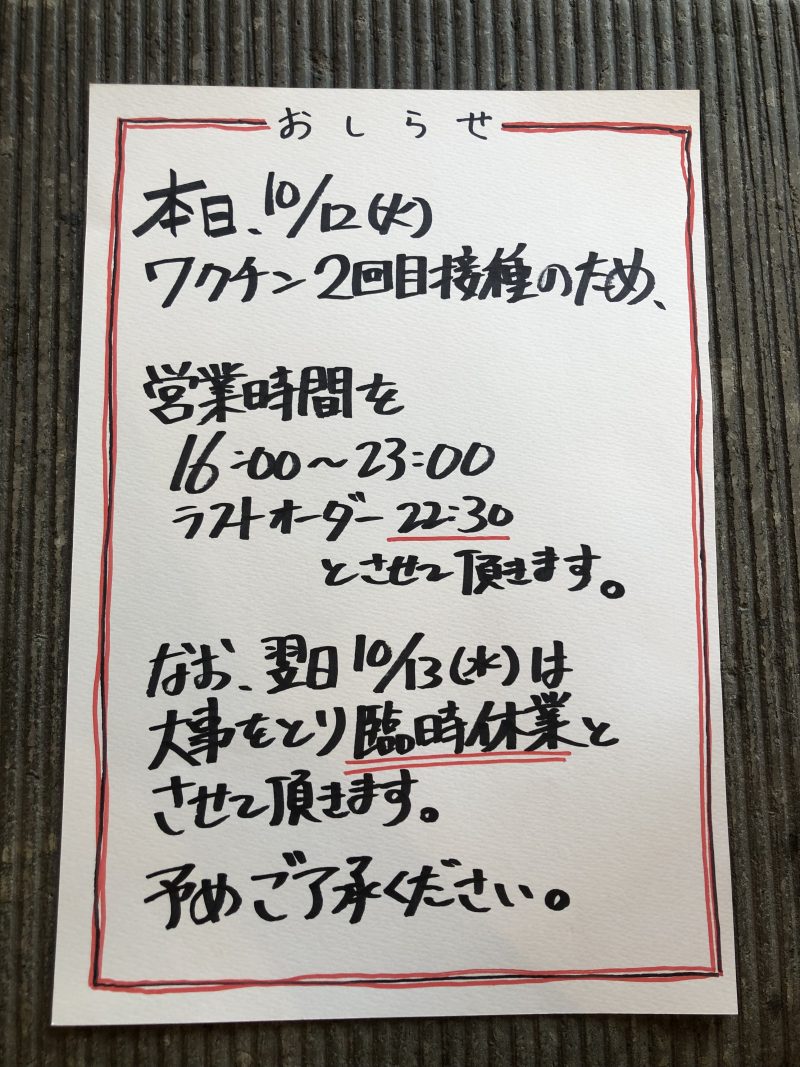 おしらせ
本日、10/12(火)
ワクチン2回目接種のため、
営業時間を
16:00〜23:00
ラストオーダー 22:30
とさせて頂きます。
なお、翌日10/13(水)は
大事をとり臨時休業と
させて頂きます。
予めご了承ください。